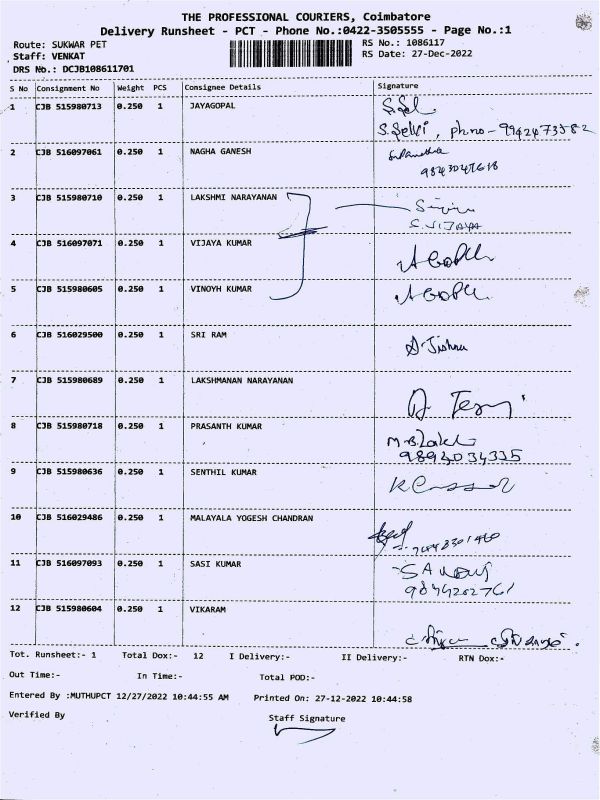 THE PROFESSIONAL COURIERS, Coimbatore
Delivery Runsheet - PCT - Phone No.:0422-3505555 - Page No.:1
Route: SUKWAR PET RS No.: 1086117
Staff: VENKAT RS Date: 27-Dec-2022
DRS No.: DCJB108611701
S No Consignment No Weight PCS Consignee Details Signature
1 CJB 515980713 0.250 1 JAYAGOPAL
S.Selvi, ph.no - 9942473582
2 CJB 516097061 0.250 1 NAGHA GANESH
9843047618
3 CJB 515980710 0.250 1 LAKSHMI NARAYANAN
S.VIJAYA
4 CJB 516097071 0.250 1 VIJAYA KUMAR
5 CJB 515980605 0.250 1 VINOYH KUMAR
6 CJB 516029500 0.250 1 SRI RAM
7 CJB 515980689 0.250 1 LAKSHMANAN NARAYANAN
8 CJB 515980718 0.250 1 PRASANTH KUMAR
9 CJB 515980636 0.250 1 SENTHIL KUMAR
10 CJB 516029486 0.250 1 MALAYALA YOGESH CHANDRAN
11 CJB 516097093 0.250 1 SASI KUMAR
12 CJB 515980604 0.250 1 VIKARAM
Tot. Runsheet:- 1 Total Dox:- 12 I Delivery:- II Delivery:- RTN Dox:-
Out Time:- In Time:- Total POD:-
Entered By :MUTHUPCT 12/27/2022 10:44:55 AM Printed On: 27-12-2022 10:44:58
Verified By Staff Signature